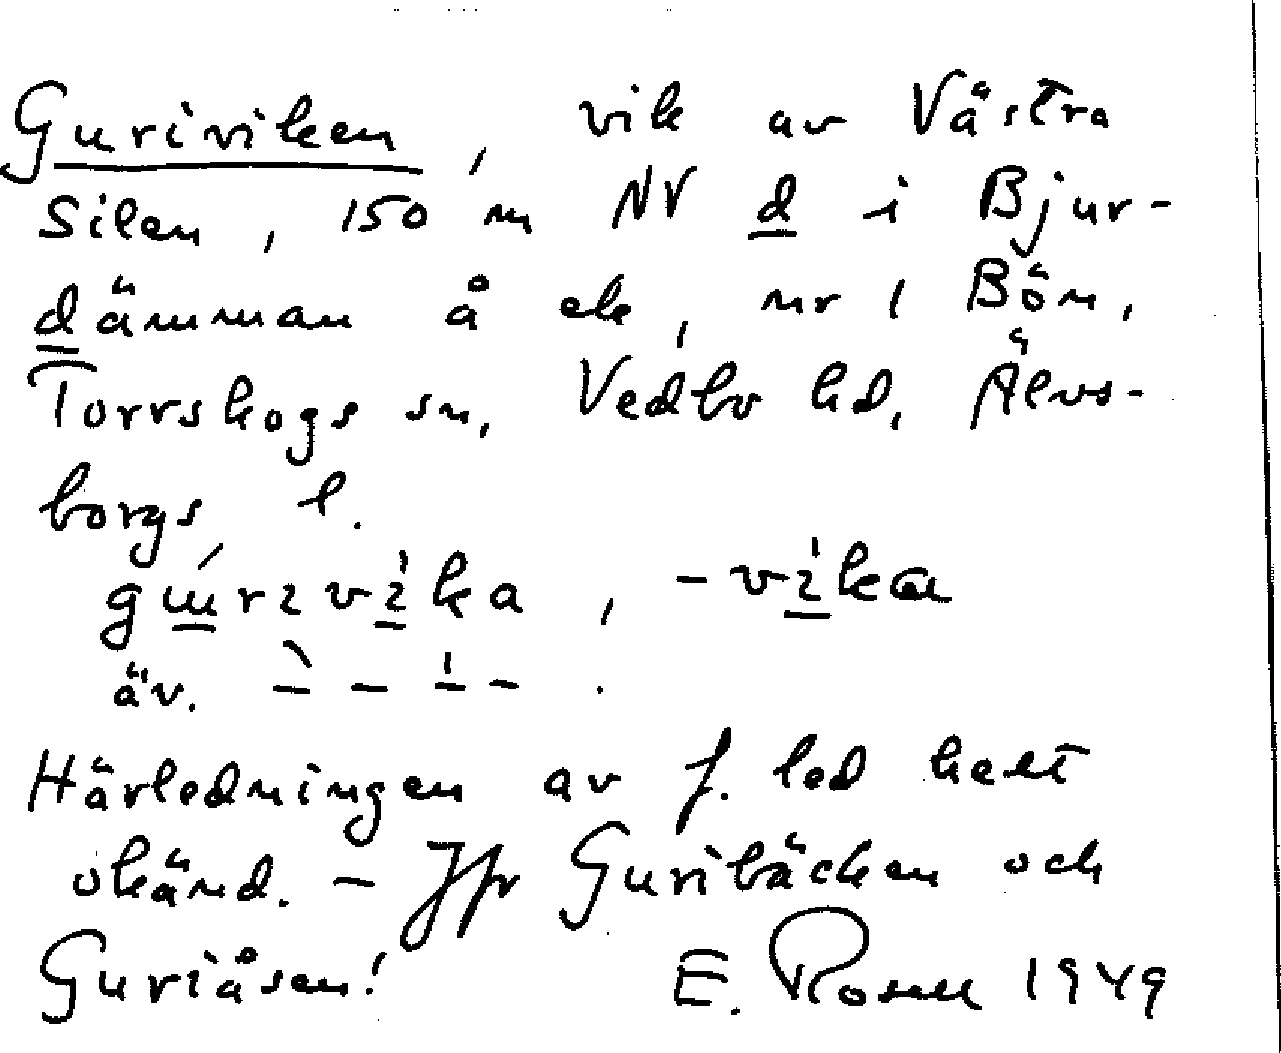 Guriviken, vik av Västra
Silen, 150 m NV d i Bjur-
dämman å ek, nr 1 Bön,
Torrskogs sn, Vedbo hd, Älvs-
borgs l.
-vika
äv. – – – – .
Härledningen av f. led helt
okänd. – Jfr Guribäcken och
Guriåsen! E. Rosell 1949